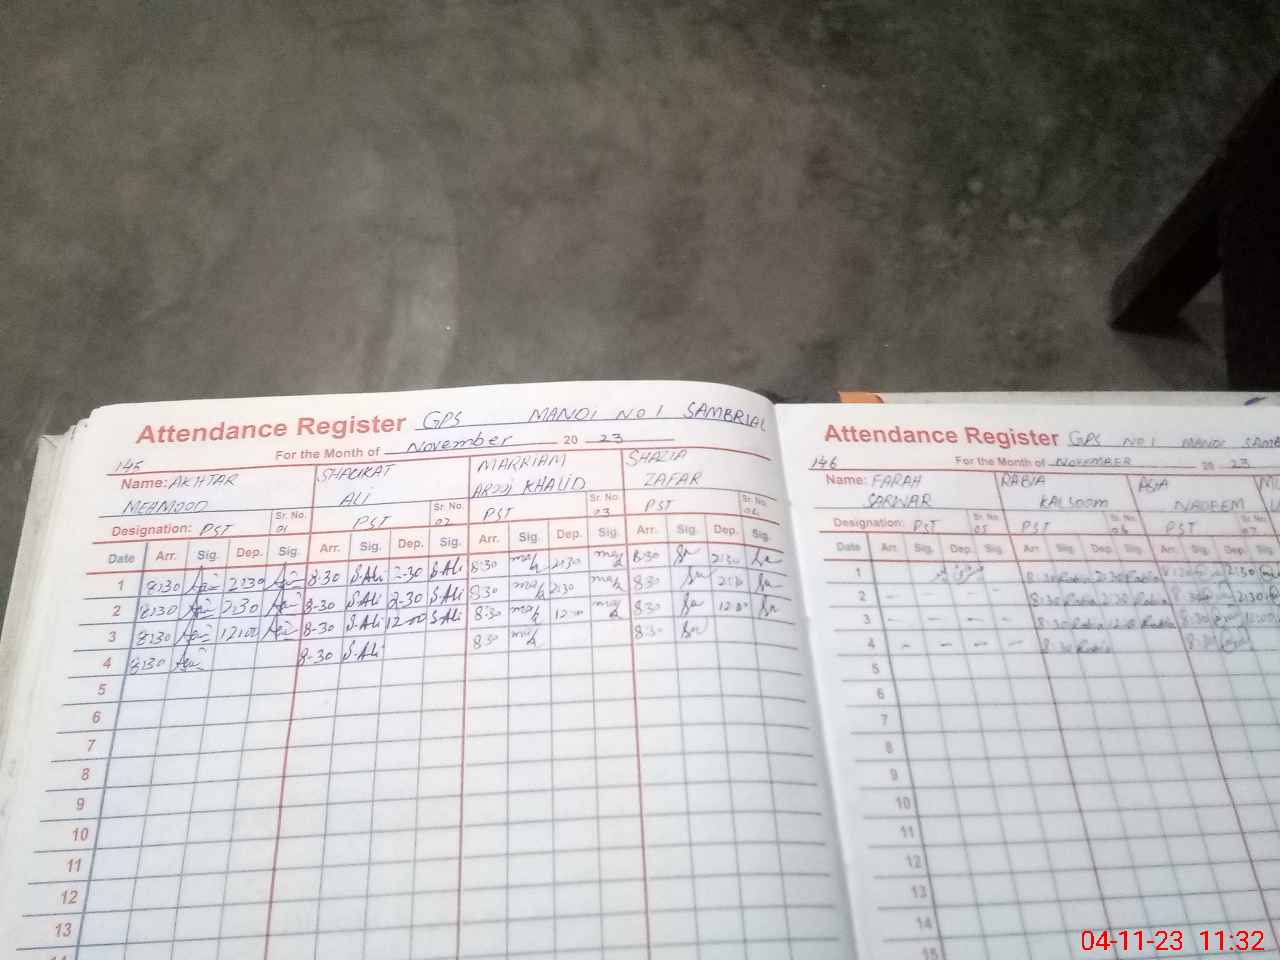 Attendance Register GPS MANDI NO 1 SAMBRIAL
For the Month of November 20 23
145
Name: AKHTAR SHAUKAT MARRIAM SHAZIA
MEHMOOD ALI AROOJ KHALID ZAFAR
Designation: PST Sr. No. 01 PST Sr. No. 02 PST Sr. No. 03 PST Sr. No. 04
Date Arr. Sig. Dep. Sig. Arr. Sig. Dep. Sig. Arr. Sig. Dep. Sig. Arr. Sig. Dep. Sig.
1 8:30 2:30 8-30 S.Ali 2-30 S.Ali 8:30 2:30 8:30 2:30
2 8:30 2:30 8-30 S.Ali 2-30 S.Ali 8:30 2:30 8:30 2:30
3 8:30 12:00 8-30 S.Ali 12-00 S.Ali 8:30 12:00 8:30 12:00
4 8:30 8-30 S.Ali 8:30 8:30
5
6
7
8
9
10
11
12
13
Attendance Register GPS NO 1 MANDI SAMB
146 For the Month of NOVEMBER 20 23
Name: FARAH RABIA ASIA
SARWAR KALSOOM NADEEM
Designation: PST Sr. No. 05 PST Sr. No. 06 PST Sr. No. 07
Date Arr. Sig. Dep. Sig. Arr. Sig. Dep. Sig. Arr. Sig. Dep. Sig.
1 8:30 Rabia 2:30 Rabia 2:30
2 - - - - 8:30 Rabia 2:30 Rabia 8:30 2:30
3 - - - - 8:30 Rabia 12:0 Rabia 8:30
4 - - - - 8:30 Rabia 8:30
5
6
7
8
9
10
11
12
13
14
15
04-11-23 11:32